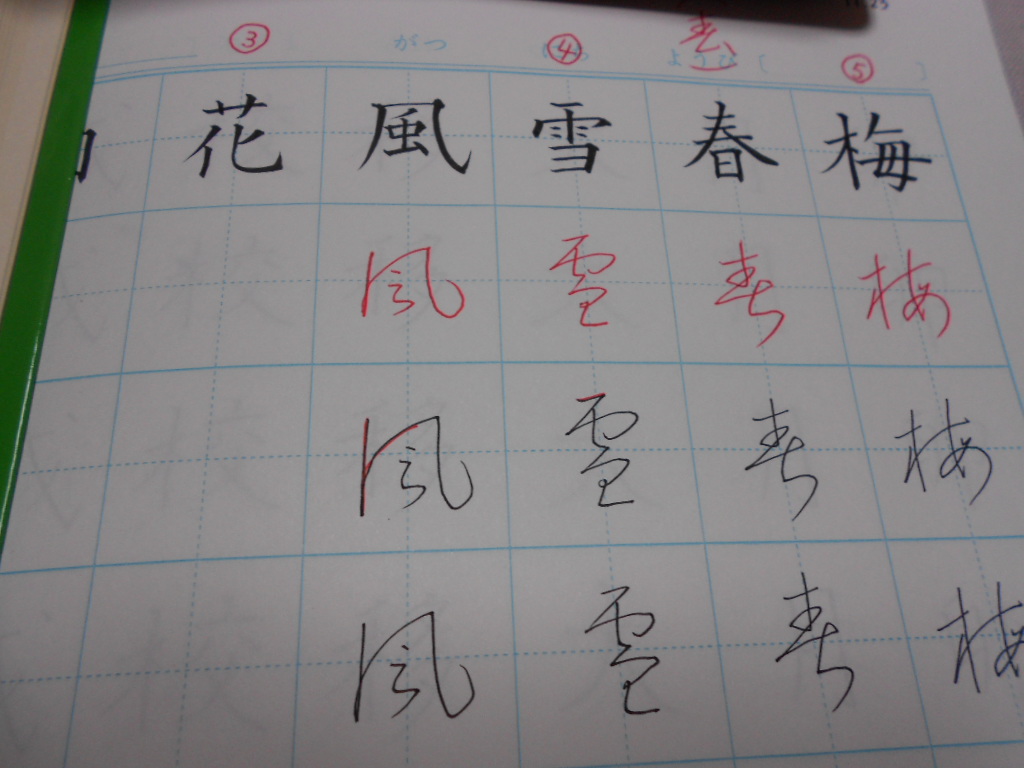 ③ がつ ④ ようび [ ⑤ ]
春
花 風 雪 春 梅
風 雪 春 梅
風 雪 春 梅
風 雪 春 梅